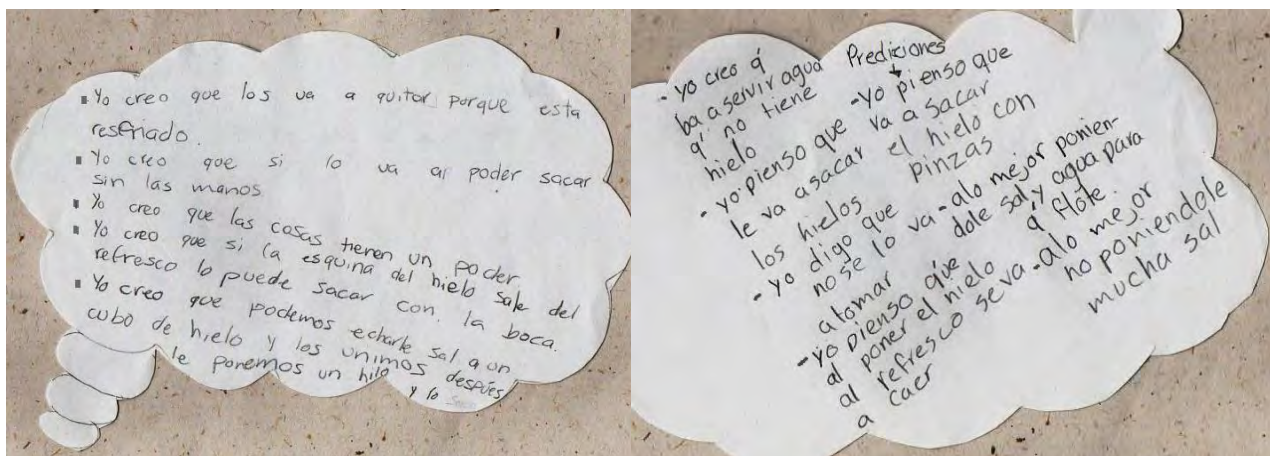 ▪ Yo creo que los va a quitar porque esta
resfriado.
▪ Yo creo que si lo va a poder sacar
sin las manos
▪ Yo creo que las cosas tienen un poder
▪ Yo creo que si la esquina del hielo sale del
refresco lo puede sacar con la boca.
▪ Yo creo que podemos echarle sal a un
cubo de hielo y los unimos después
le ponemos un hilo
y lo
Prediciones
- yo creo q'
ba a servir agua
q' no tiene
hielo
- yo pienso que
le va a sacar
los hielos
- yo digo que
no se lo va
a tomar
- yo pienso q'ue
al poner el hielo
al refresco se va
a caer
- yo pienso que
va a sacar
el hielo con
pinzas
- alo mejor ponien-
dole sal, y agua para
q' flote.
- alo mejor
no poniendole
mucha sal